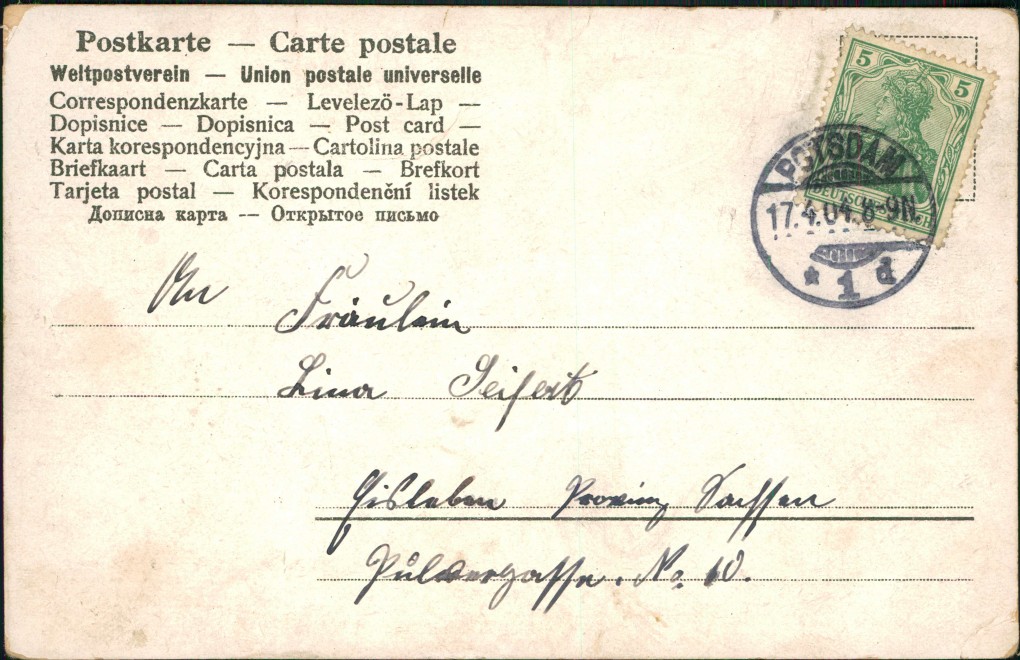 Postkarte — Carte postale
Weltpostverein — Union postale universelle
Correspondenzkarte — Levelezö-Lap —
Dopisnice — Dopisnica — Post card —
Karta korespondencyjna — Cartolina postale
Briefkaart — Carta postala — Brefkort
Tarjeta postal — Korespondenční listek
Дописна карта -- Открытое письмо
5 5
DEUTSCHES REICH
POTSDAM
17.4.04.8-9N.
* 1 d
An Fräulein
Lina Seifert
Eisleben Provinz Sachsen
Pulvergasse. No 10.